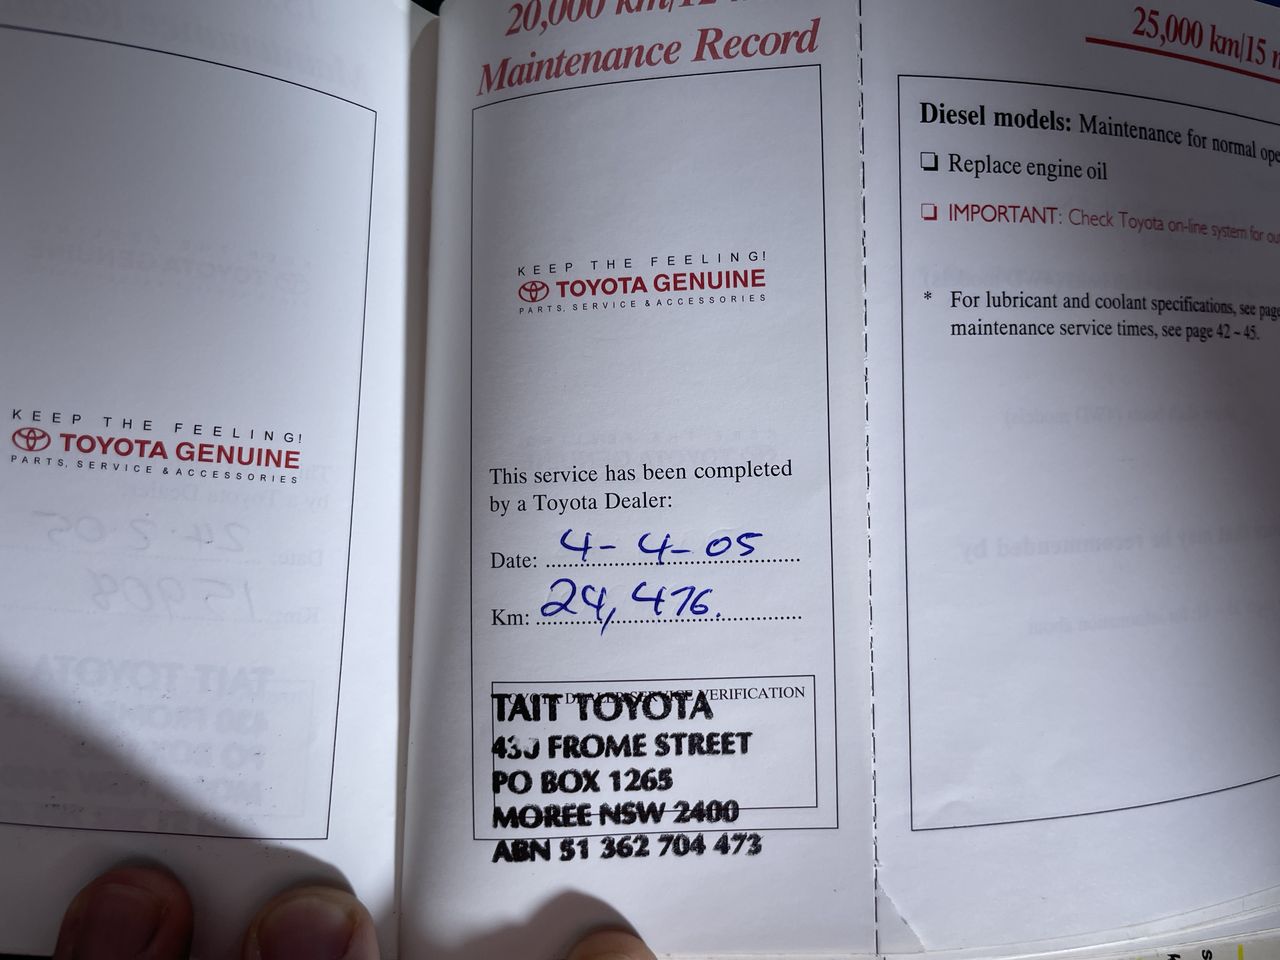 KEEP THE FEELING!
TOYOTA GENUINE
PARTS, SERVICE & ACCESSORIES
20,000 km/12
Maintenance Record
KEEP THE FEELING!
TOYOTA GENUINE
PARTS, SERVICE & ACCESSORIES
This service has been completed
by a Toyota Dealer:
Date: 4-4-05
Km: 24,476.
TOYOTA DEALER SERVICE VERIFICATION
TAIT TOYOTA
430 FROME STREET
PO BOX 1265
MOREE NSW 2400
ABN 51 362 704 473
25,000 km/15
Diesel models: Maintenance for normal
❏ Replace engine oil
❏ IMPORTANT: Check Toyota on-line system for
* For lubricant and coolant specifications, see
maintenance service times, see page 42 – 45.